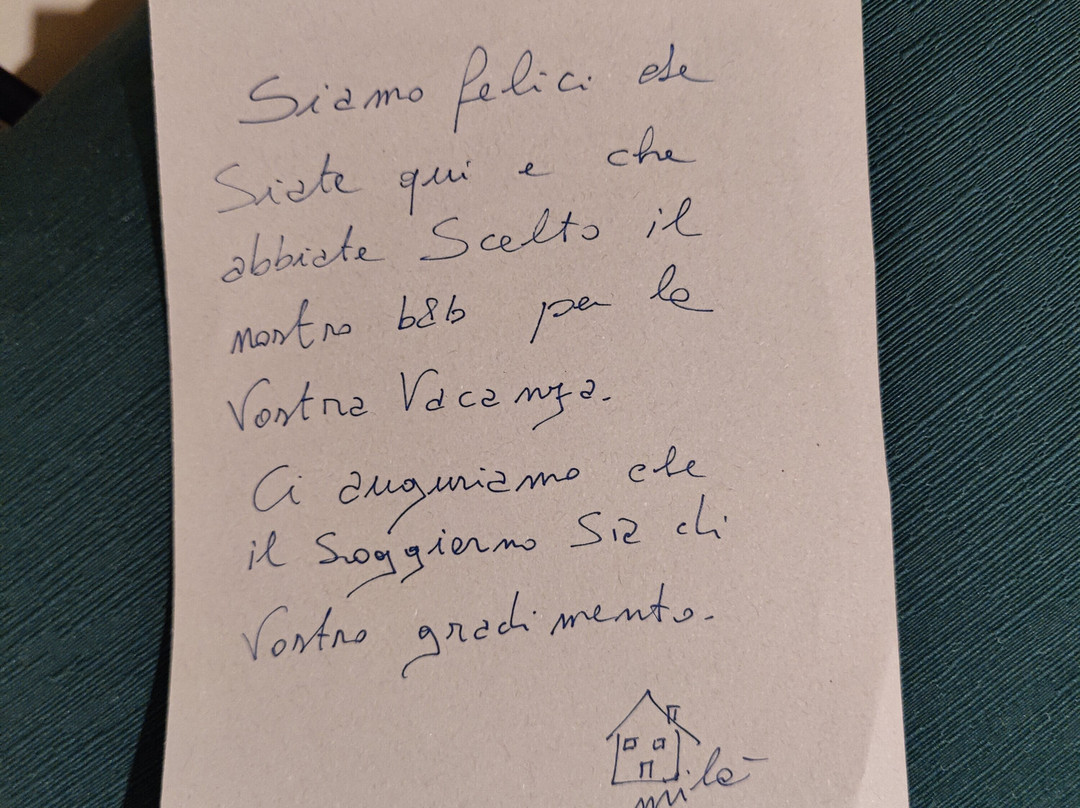 Siamo felici che
Siate qui e che
abbiate Scelto il
nostro b&b per la
Vostra Vacanza.
Ci auguriamo che
il Soggiorno Sia di
Vostro gradimento.